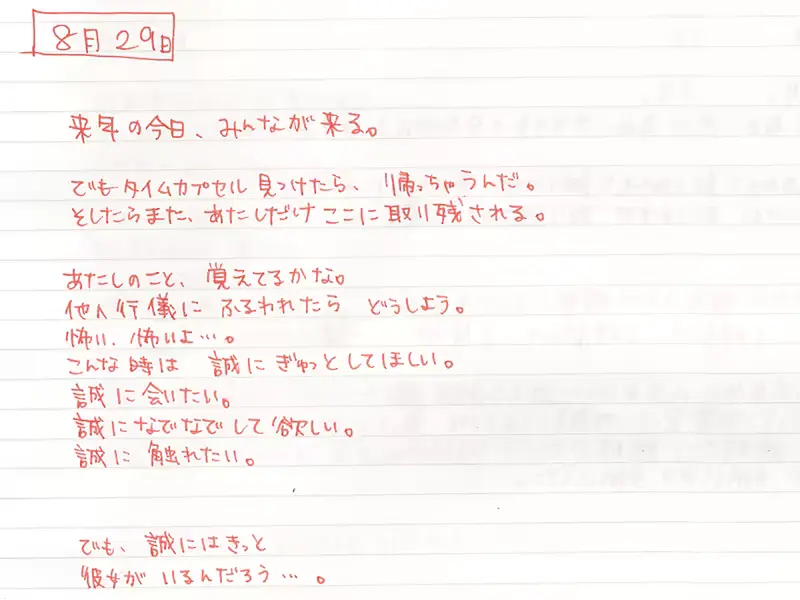 8月29日
来年の今日、みんなが来る。
でもタイムカプセル見つけたら、帰っちゃうんだ。
そしたらまた、あたしだけここに取り残される。
あたしのこと、覚えてるかな。
他人行儀に ふるわれたら どうしよう。
怖い、怖いよ…。
こんな時は 誠にぎゅっとしてほしい。
誠に会いたい。
誠になでなでして欲しい。
誠に 触れたい。
でも、誠にはきっと
彼女が いるんだろう…。